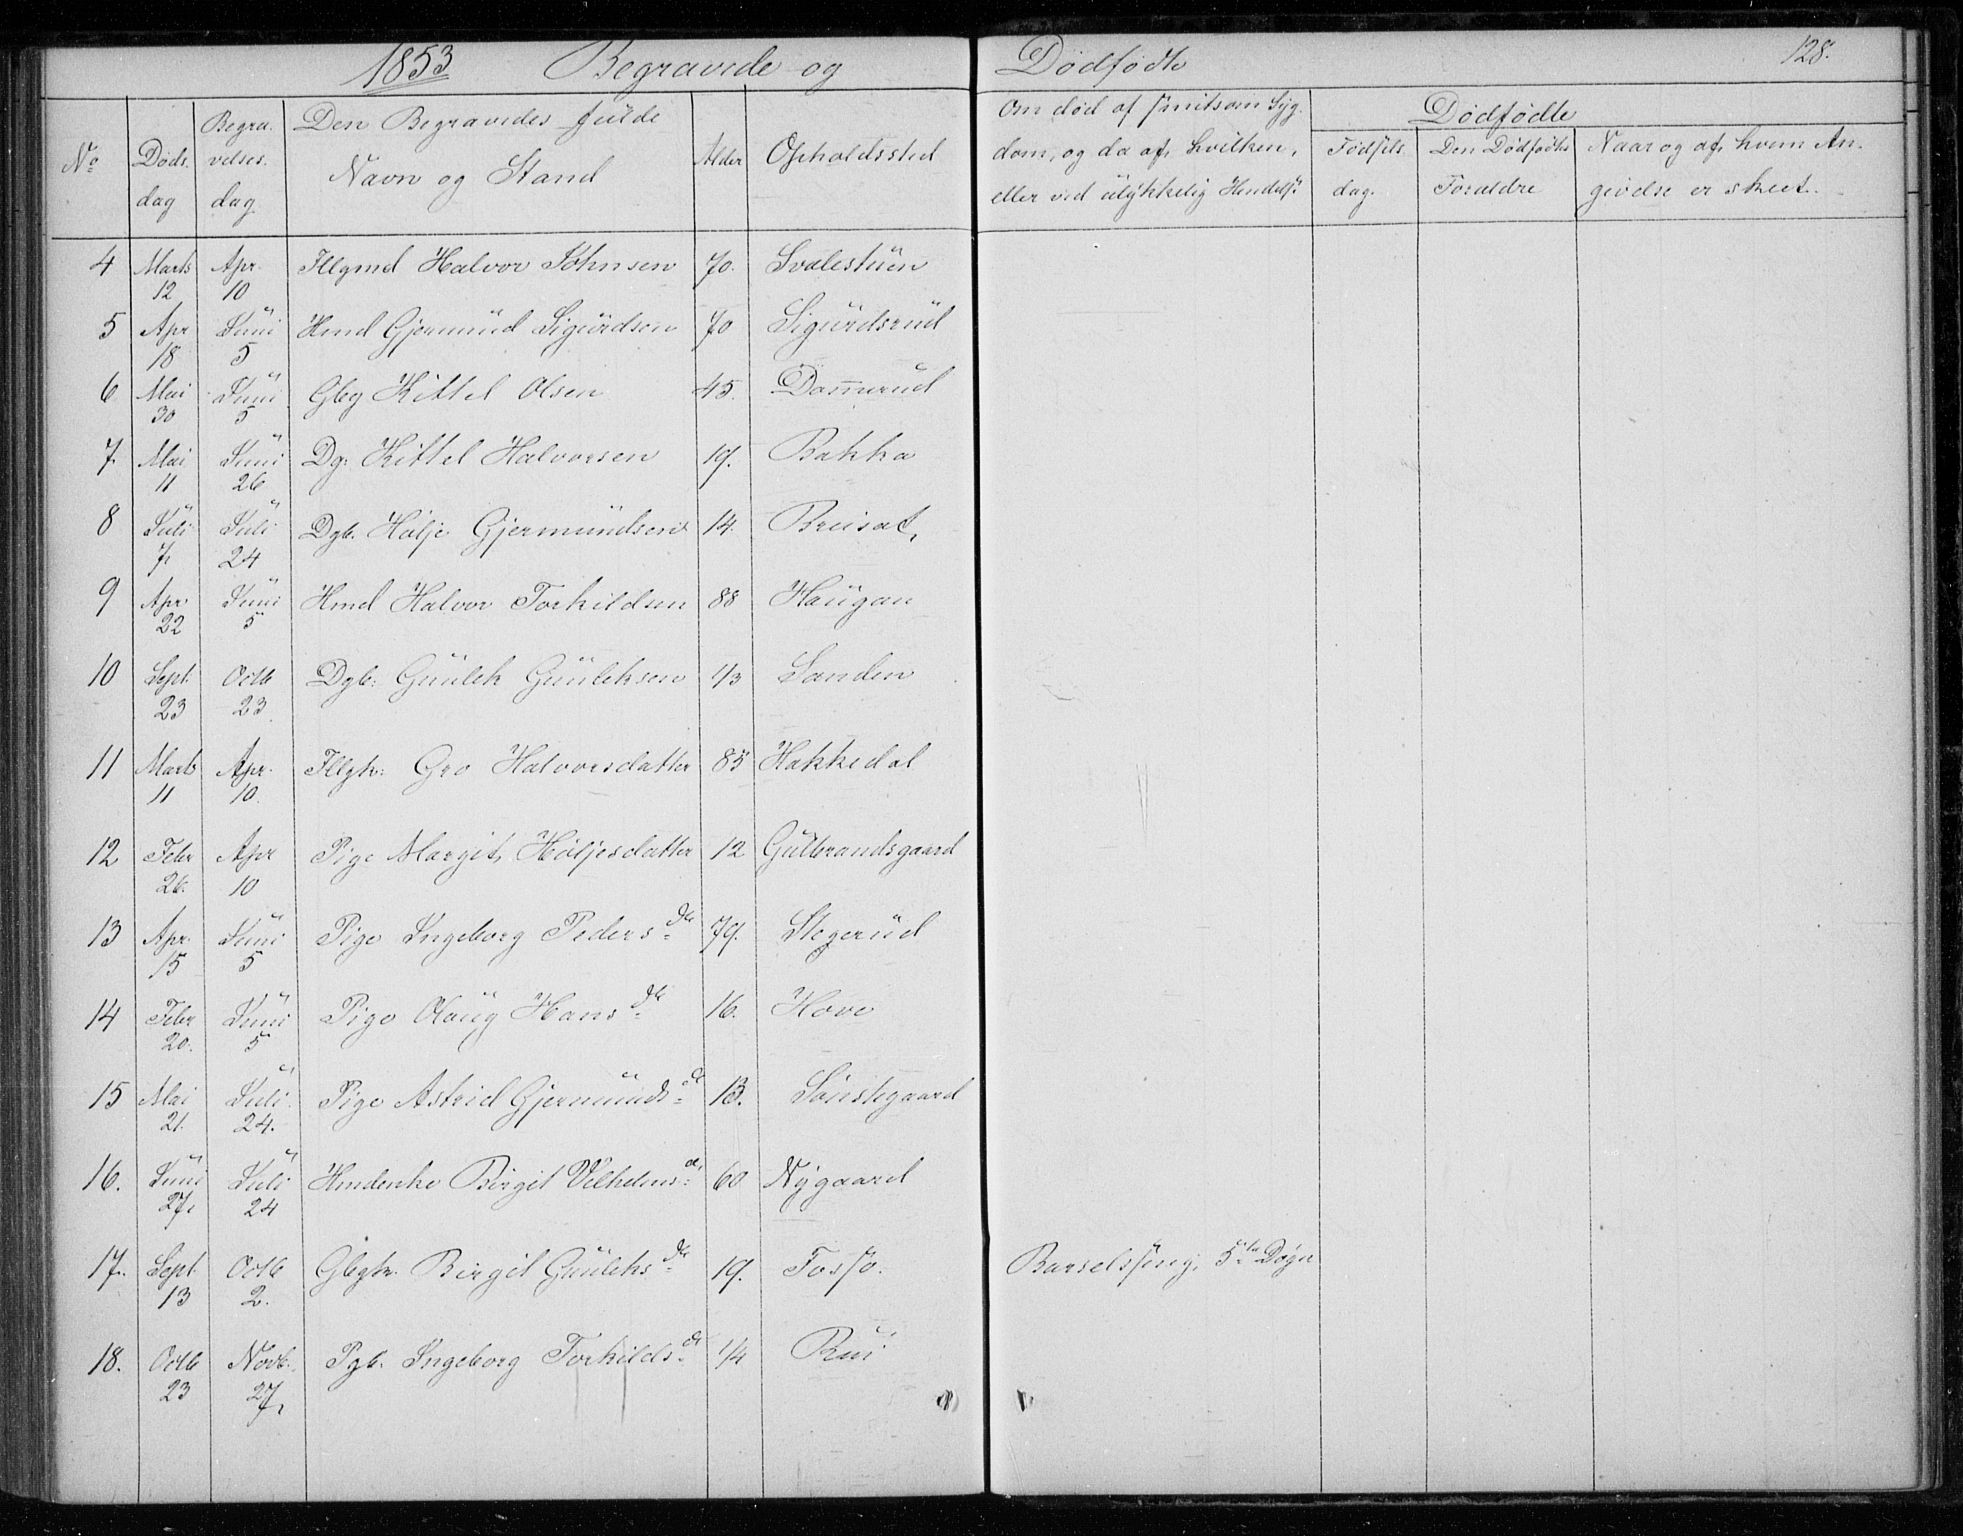 1853 Begravede og Dødfødte 128.
No
Døds dag
Begravelses dag
Den Begravedes fulde Navn og Stand
Alder
Opholdssted
Om død af smitsom Sygdom, og da af hvilken, eller ved ulykkelig Hændelse
Dødfødte
Fødsels dag.
Den Dødfødtes Forældre
Naar og af hvem Angivelse er skeet.
4 Marts 12 Apr. 10 Fllgmd Halvor Johnsen 70. Svalestuen
5 Apr 18 Juni 5 Hmd Gjermund Sigurdsen 70 Sigurdsrud
6 Mai 30 Juni 5 Gbg Kittel Olsen 45. Dammerud
7. Mai 11 Juni 26 Dg: Kittel Halvorsen 19. Bakka
8 Juli 7, Juli 24 Dgb. Holje Gjermundsen 14. Breisat,
9 Apr. 22 Juni 5 Hmd Halvor Torkildsen 88 Haugan
10 Sept. 23 Octb 23. Dgb: Gunlek Gunleksen 1/3 Sanden
11 Marts 11 Apr. 10. Fllgk: Gro Halvorsdatter 85 Hakkedal
12 Febr 26. Apr 10 Pige Margit Høljesdatter 12 Gulbrandsgaard
13 Apr. 15 Juni 5 Pige Ingeborg Peders dtr 79. Stegerud
14 Febr 20. Juni 5 Pige Olaug Hans dtr 16. Hove
15 Mai 21. Juli 24. Pige Astrid Gjermunds d 13. Sønstegaard
16. Juni 27, Juli 24 Hmdenke Birgit Vetledens d, 60 Nygaard
17. Sept. 13 Octb 2. Gbgk. Birgit Gunleks dtr 19. Fosso. Barselsseng, 5te Døgn
18. Octb 23 Novb. 27, Pgb. Ingeborg Torkilds d 1/4 Rui